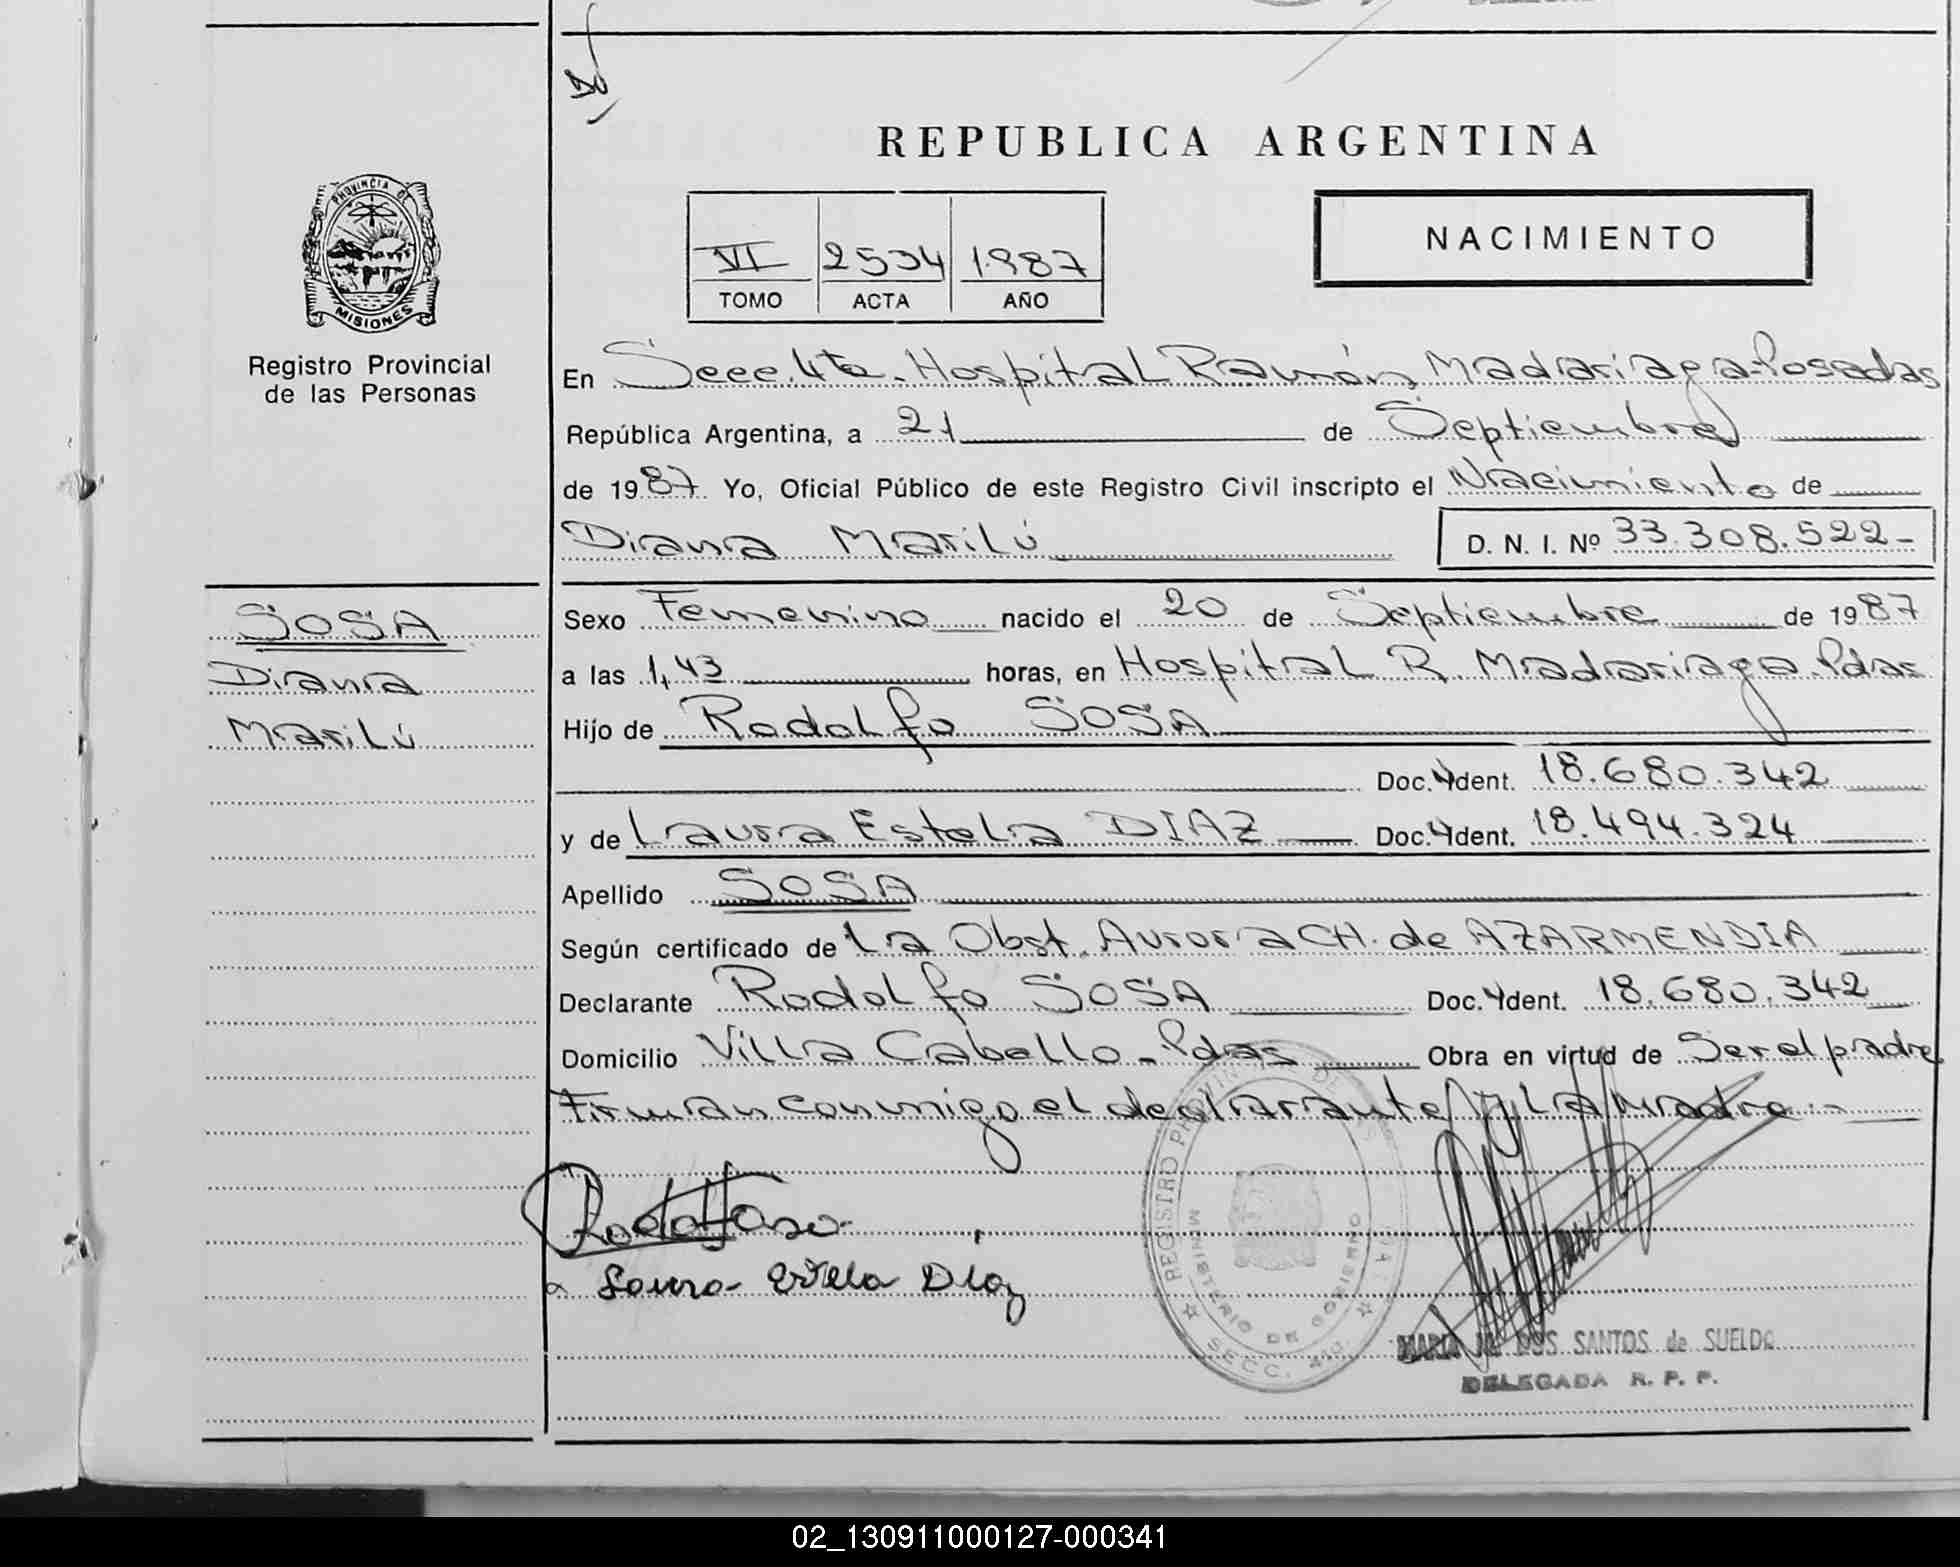 REPUBLICA ARGENTINA
PROVINCIA DE
MISIONES
Registro Provincial
de las Personas
VI 2534 1987
TOMO ACTA AÑO
NACIMIENTO
En Secc. 4ta. Hospital Ramón Madariaga-Posadas
República Argentina, a 21 de Septiembre
de 1987 Yo, Oficial Público de este Registro Civil inscripto el Nacimiento de
Diana Marilú D. N. I. Nº 33.308.522-
SOSA
Diana
Marilú
Sexo Femenino nacido el 20 de Septiembre de 1987
a las 1,43 horas, en Hospital R. Madariaga. Pdas
Hijo de Rodolfo SOSA
Doc. Ident. 18.680.342
y de Laura Estela DIAZ Doc. Ident. 18.494.324
Apellido SOSA
Según certificado de La Obst. Aurora CH. de AZARMENDIA
Declarante Rodolfo SOSA Doc. Ident. 18.680.342
Domicilio Villa Cabello - Pdas Obra en virtud de Ser el padre
Firman conmigo el declarante y La Madre.-
REGISTRO PROVINCIAL DE LAS PERSONAS
MINISTERIO DE GOBIERNO
SECC. 4ta.
Rodolfo Sosa
Laura Estela Díaz
MARIA DOS SANTOS de SUELDO
DELEGADA R. P. P.
02_130911000127-000341